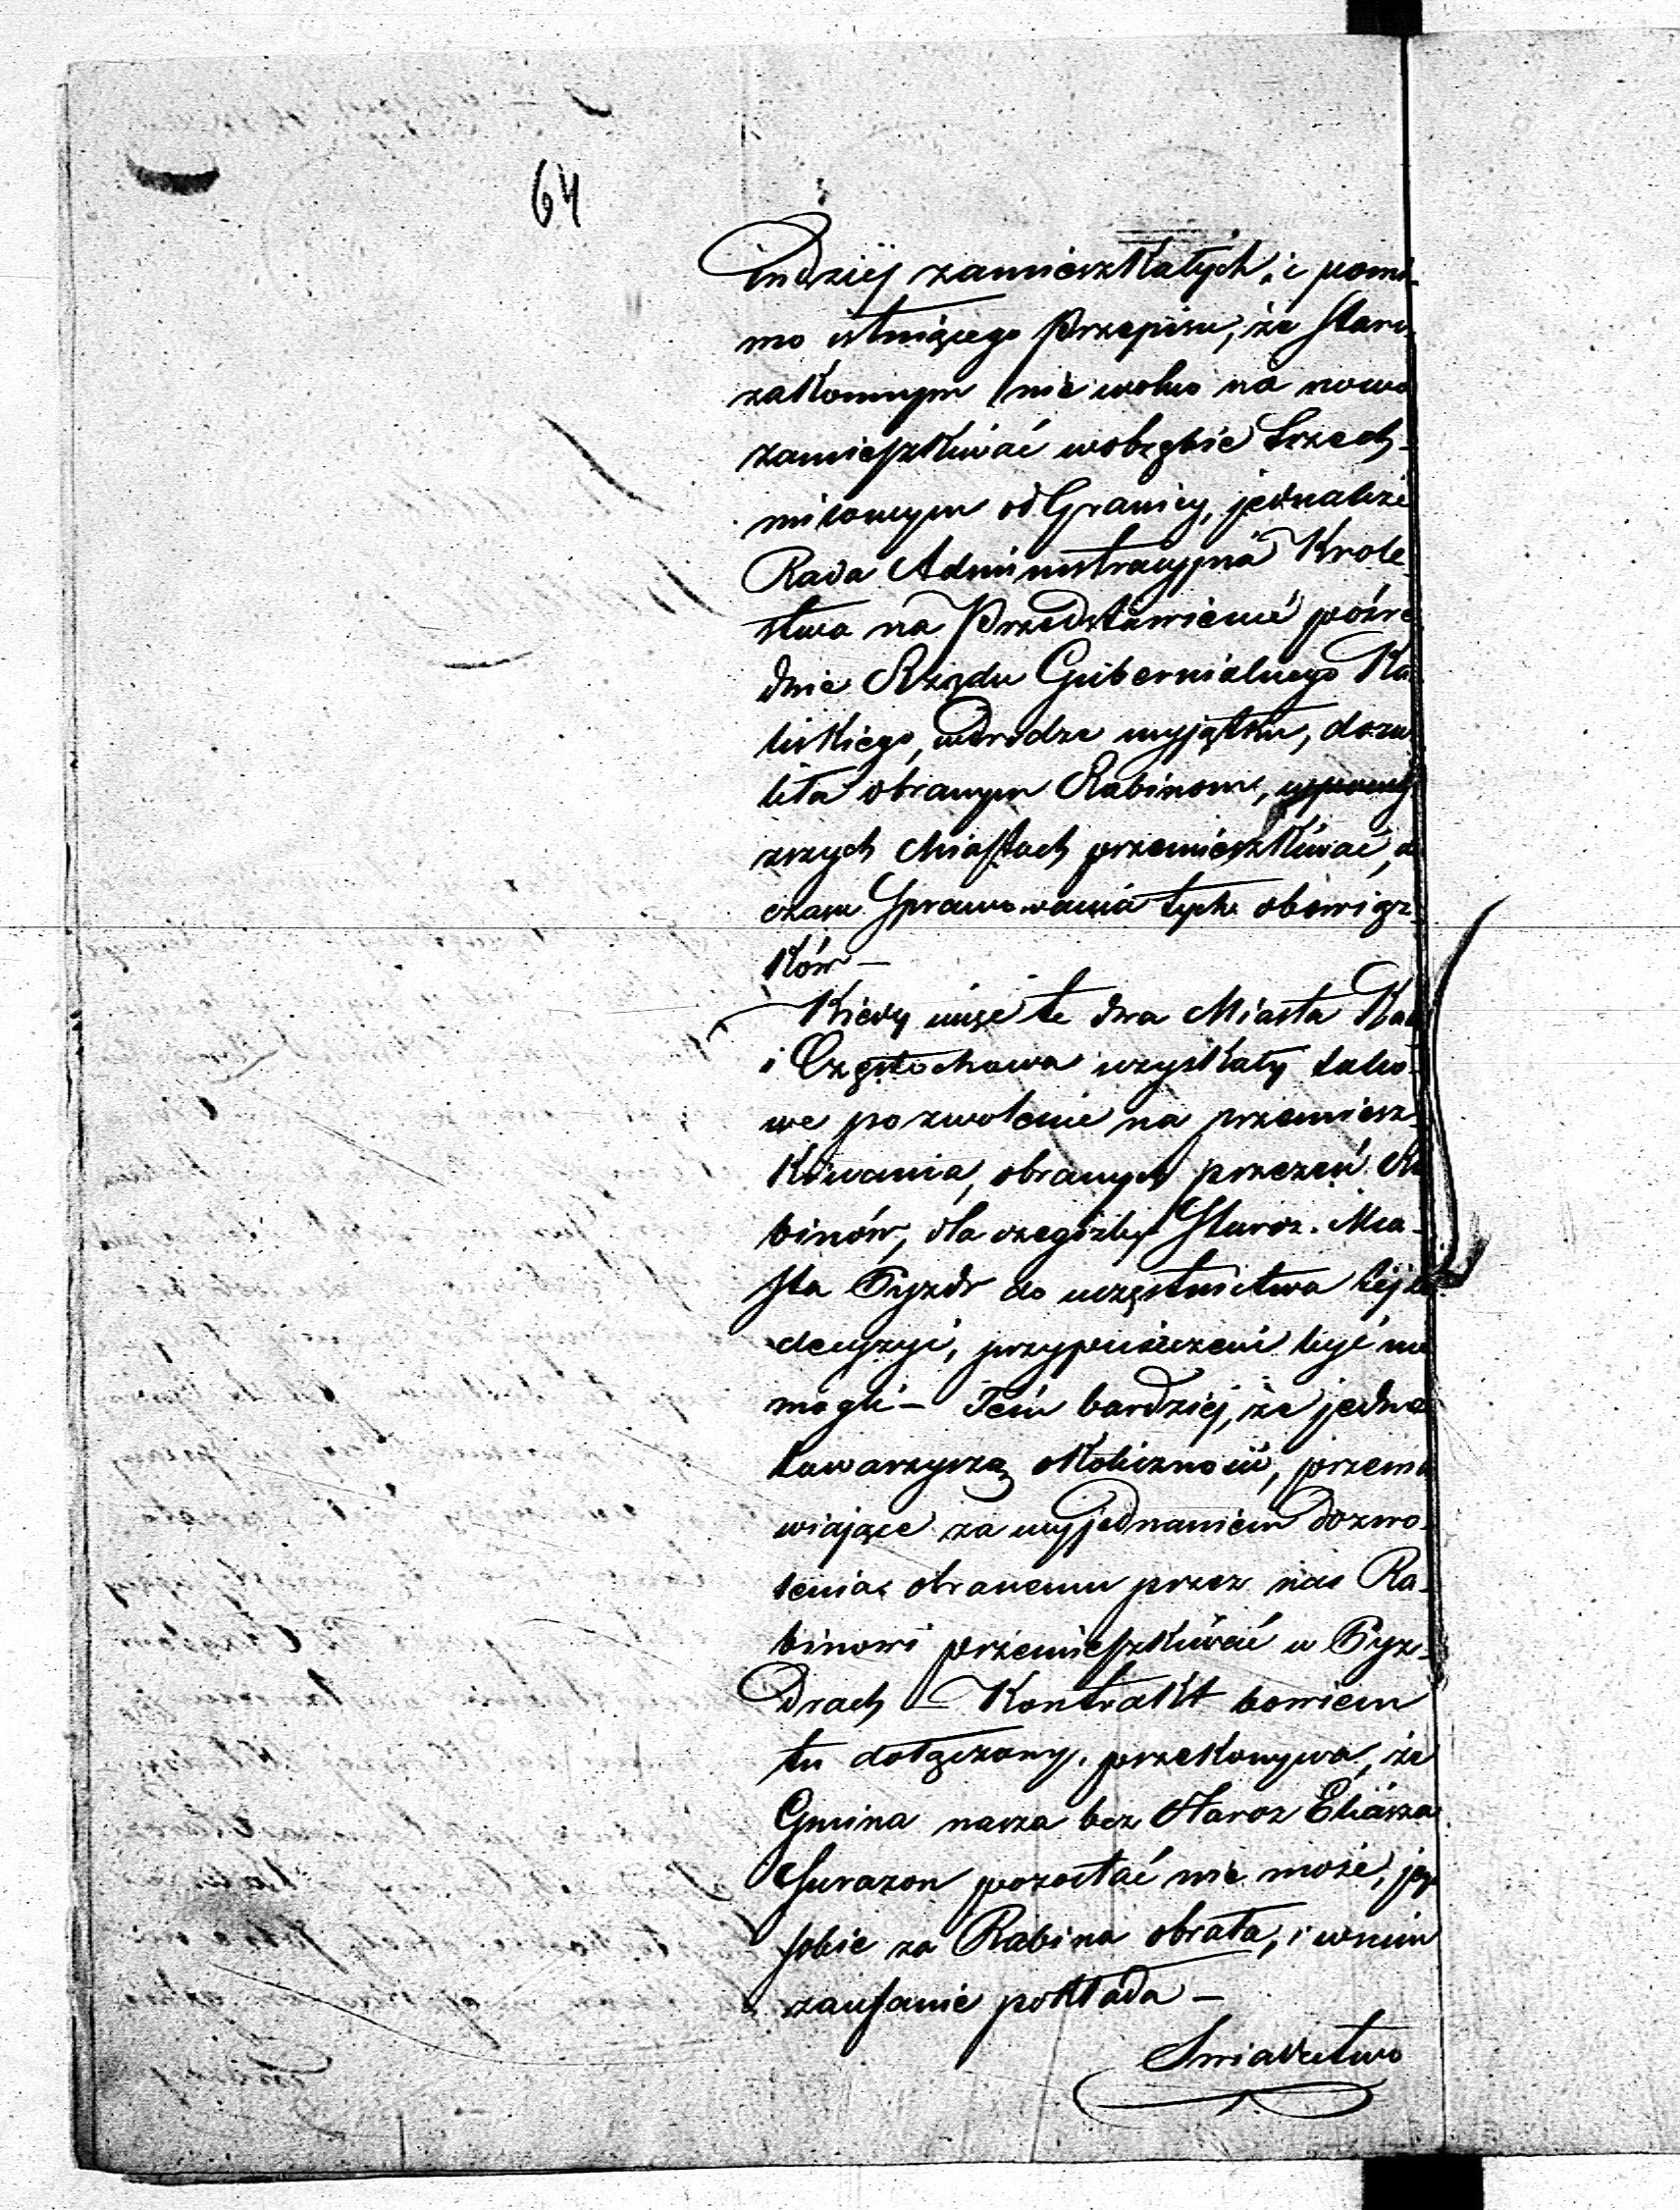 64
indziej zamieszkałych, i pomi-
mo istniącego Przepisu, że Staro
zakonnym nie wolno na nowo
zamieszkiwać wobrębie trzech
milowym od Granicy, jednakże
Rada Administracyjna Krole-
stwa na Przedstawienie pośre
dnie Rządu Gubernialnego Ka
liskiego, wdrodze wyjątku, dozwo
liła obranym Rabinom,
zszych Miastach przemieszkiwać,
czasu Sprawowania tych obowiąz-
ków —
Kiedy więc te dwa Miasta Kal
i Częstochowa uzyskały tako-
we pozwolenie na przemiesz-
kiwania, obranych przezeń Ra
binów, dla czegożby Staroz. Mia-
sta Pyzdr do uczęstnictwa tejże
decyzyi, przypuszczeni być nie
mogli — Tém bardziej, że jedna
towarzyszą okoliczności, przema
wiające za wyjednaniem dozwo-
lenia obranemu przez nas Ra-
binowi przemieszkiwać w Pyz-
drach — Kontrakt bowiem
tu dołączony, przekonywa, że
Gmina nasza bez Staroz Eliasza
pozostać nie może, jego
sobie za Rabina obrała, i wnim
zaufanie pokłada —
Swiadectwo